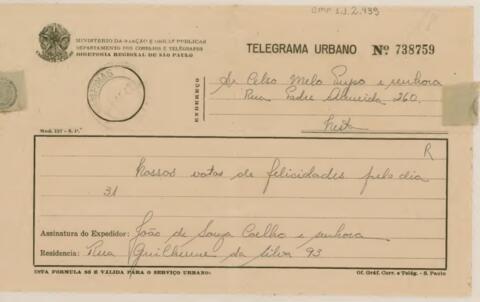 CMP 1.1.2.939
MINISTÉRIO DA VIAÇÃO E OBRAS PÚBLICAS
DEPARTAMENTO DOS CORREIOS E TELÉGRAFOS
DIRETORIA REGIONAL DE SÃO PAULO
TELEGRAMA URBANO Nº 738759
ENDEREÇO
Sr. Celso Melo Pupo e senhora
Rua Padre Almeida 260.
Nesta
Mod. 127 - S. P.
R
Nossos votos de felicidades pelo dia
31
Assinatura do Expedidor: João de Souza Coelho e senhora
Residencia: Rua Guilherme da Silva 93
ESTA FORMULA SÓ É VÁLIDA PARA O SERVIÇO URBANO:
Of. Gráf. Corr. e Telég. - S. Paulo